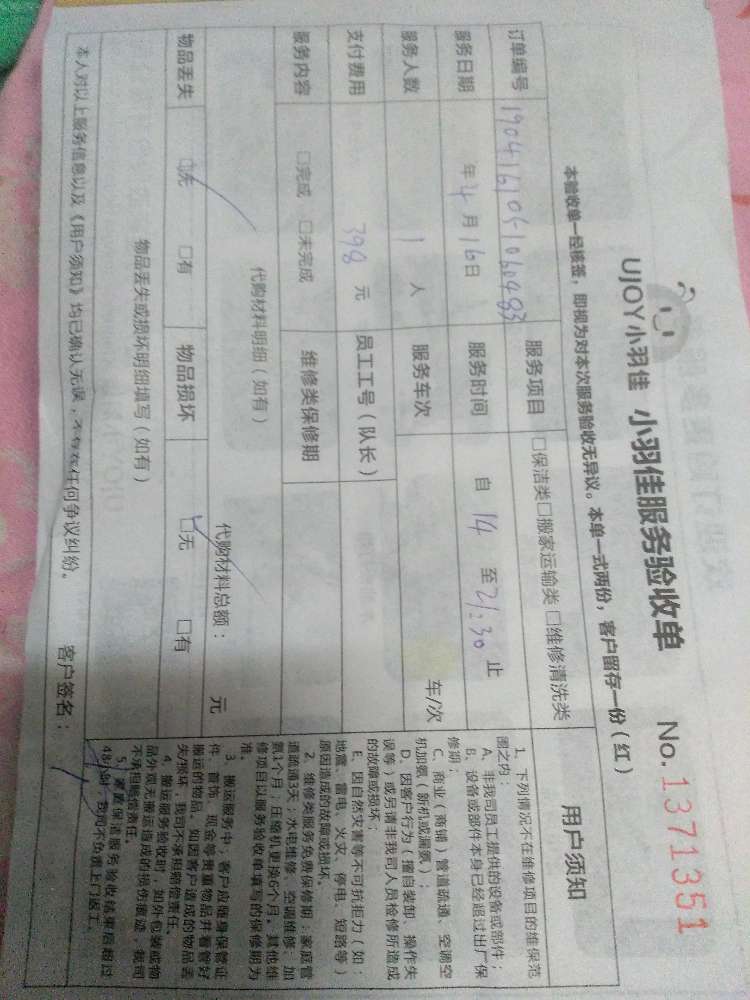 UJOY小羽佳 小羽佳服务验收单 No. 1371351
本验收单一经核签，即视为对本次服务验收无异议。本单一式两份，客户留存一份（红）
订单编号 服务项目 □保洁类□搬家运输类□维修清洗类
服务日期 年4月16日 服务时间 自 14 至 21:30 止
服务人数 1 人 服务车次 车/次
支付费用 398 元 员工工号（队长）
服务内容 □完成 □未完成 维修类保修期
代购材料明细（如有）
代购材料总额： 元
物品丢失 □无 □有 物品损坏 □无 □有
物品丢失或损坏明细填写（如有）
本人对以上服务信息以及《用户须知》均已确认无误，不存在任何争议纠纷。 客户签名：
用户须知
1、下列情况不在维修项目的维保范
围之内：
A、非我司员工提供的设备或部件；
B、设备或部件本身已经超过出厂保
修期；
C、商业（商铺）管道疏通、空调空
机加氨（新机或漏氨）；
D、因客户行为（擅自装卸、操作失
误等）或另请非我司人员检修所造成
的故障或损坏；
E、因自然灾害等不可抗拒力（如：
地震、雷电、火灾、停电、短路等）
原因造成的故障或损坏。
2、维修类服务免费保修期：家庭管
道疏通3天；水电维修、空调维修、加
氨1个月，压缩机更换6个月，其他维
修项目以服务验收单填写的保修期为
准。
3、搬运服务中，客户应随身保管证
件、首饰、现金等贵重物品并看管好
搬运的物品。如因客户造成的物品丢
失/损坏，我司不承担赔偿责任。
4、搬运服务验收时，如外包装或物
品外观无搬运造成的损伤痕迹，我司
不承担赔偿责任。
5、家庭保洁服务验收结束后超过
48小时，我司不负责上门返工。